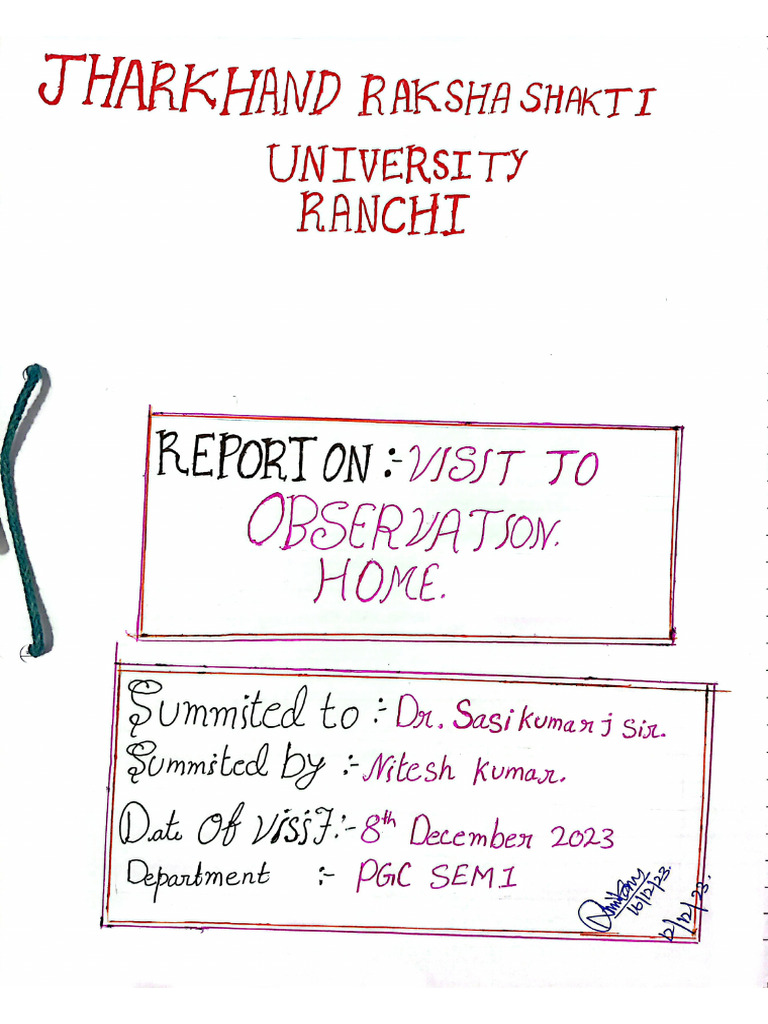 JHARKHAND RAKSHA SHAKTI
UNIVERSITY
RANCHI
REPORT ON :- VISIT TO
OBSERVATION.
HOME.
Summited to :- Dr. Sasikumar j Sir.
Summited by :- Nitesh Kumar.
Date Of Visit :- 8th December 2023
Department :- PGC SEM 1
16/12/23.
12/12/23.